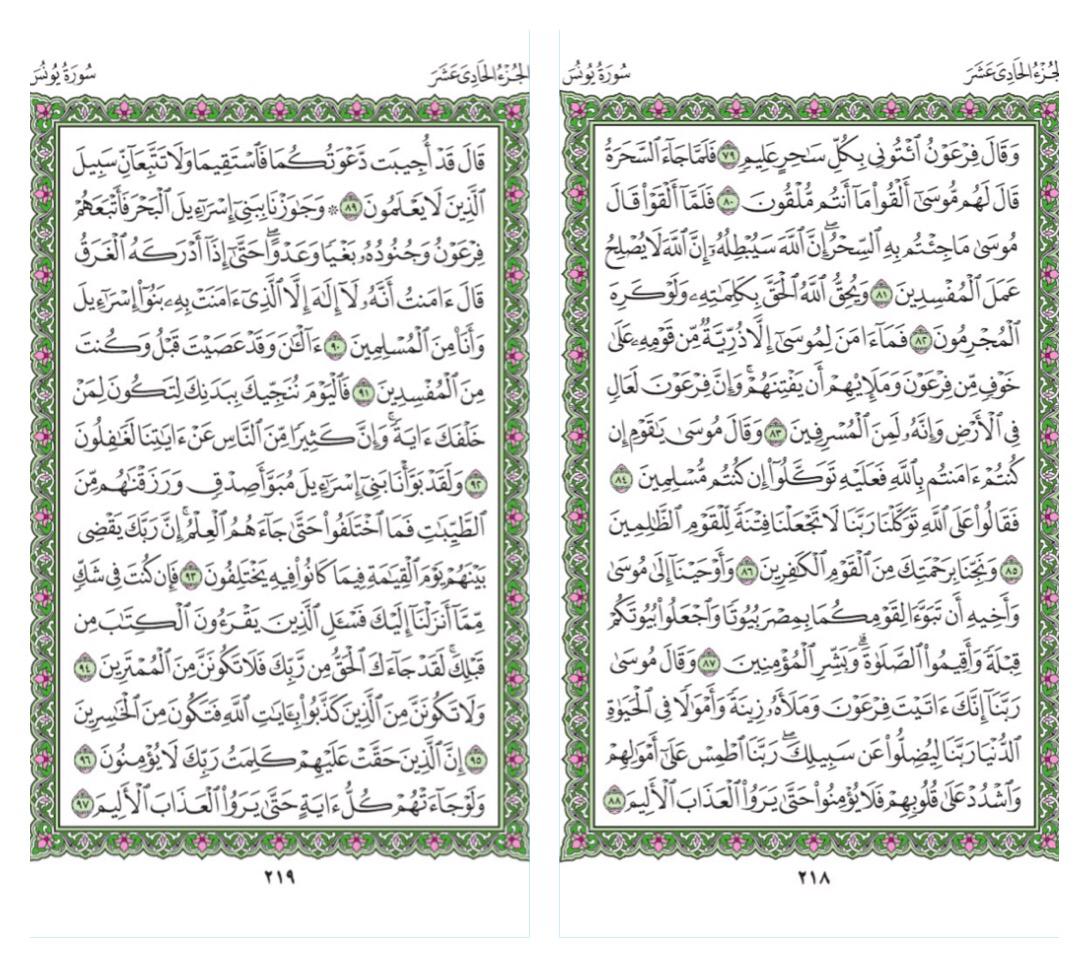 الجُزْءُ الحَادِى عَشَرَ
سُورَةُ يُونُسَ
وَقَالَ فِرْعَوْنُ ٱئْتُونِى بِكُلِّ سَـٰحِرٍ عَلِيمٍ ٧٩ فَلَمَّا جَآءَ ٱلسَّحَرَةُ
قَالَ لَهُم مُّوسَىٰٓ أَلْقُوا۟ مَآ أَنتُم مُّلْقُونَ ٨٠ فَلَمَّآ أَلْقَوْا۟ قَالَ
مُوسَىٰ مَا جِئْتُم بِهِ ٱلسِّحْرُ ۖ إِنَّ ٱللَّهَ سَيُبْطِلُهُۥٓ ۖ إِنَّ ٱللَّهَ لَا يُصْلِحُ
عَمَلَ ٱلْمُفْسِدِينَ ٨١ وَيُحِقُّ ٱللَّهُ ٱلْحَقَّ بِكَلِمَـٰتِهِۦ وَلَوْ كَرِهَ
ٱلْمُجْرِمُونَ ٨٢ فَمَآ ءَامَنَ لِمُوسَىٰٓ إِلَّا ذُرِّيَّةٌ مِّن قَوْمِهِۦ عَلَىٰ
خَوْفٍ مِّن فِرْعَوْنَ وَمَلَإِي۟هِمْ أَن يَفْتِنَهُمْ ۚ وَإِنَّ فِرْعَوْنَ لَعَالٍ
فِى ٱلْأَرْضِ وَإِنَّهُۥ لَمِنَ ٱلْمُسْرِفِينَ ٨٣ وَقَالَ مُوسَىٰ يَـٰقَوْمِ إِن
كُنتُمْ ءَامَنتُم بِٱللَّهِ فَعَلَيْهِ تَوَكَّلُوٓا۟ إِن كُنتُم مُّسْلِمِينَ ٨٤
فَقَالُوا۟ عَلَى ٱللَّهِ تَوَكَّلْنَا رَبَّنَا لَا تَجْعَلْنَا فِتْنَةً لِّلْقَوْمِ ٱلظَّـٰلِمِينَ
٨٥ وَنَجِّنَا بِرَحْمَتِكَ مِنَ ٱلْقَوْمِ ٱلْكَـٰفِرِينَ ٨٦ وَأَوْحَيْنَآ إِلَىٰ مُوسَىٰ
وَأَخِيهِ أَن تَبَوَّءَا لِقَوْمِكُمَا بِمِصْرَ بُيُوتًا وَٱجْعَلُوا۟ بُيُوتَكُمْ
قِبْلَةً وَأَقِيمُوا۟ ٱلصَّلَوٰةَ ۗ وَبَشِّرِ ٱلْمُؤْمِنِينَ ٨٧ وَقَالَ مُوسَىٰ
رَبَّنَآ إِنَّكَ ءَاتَيْتَ فِرْعَوْنَ وَمَلَأَهُۥ زِينَةً وَأَمْوَٰلًا فِى ٱلْحَيَوٰةِ
ٱلدُّنْيَا رَبَّنَا لِيُضِلُّوا۟ عَن سَبِيلِكَ ۖ رَبَّنَا ٱطْمِسْ عَلَىٰٓ أَمْوَٰلِهِمْ
وَٱشْدُدْ عَلَىٰ قُلُوبِهِمْ فَلَا يُؤْمِنُوا۟ حَتَّىٰ يَرَوُا۟ ٱلْعَذَابَ ٱلْأَلِيمَ ٨٨
٢١٨
الجُزْءُ الحَادِى عَشَرَ
سُورَةُ يُونُسَ
قَالَ قَدْ أُجِيبَت دَّعْوَتُكُمَا فَٱسْتَقِيمَا وَلَا تَتَّبِعَآنِّ سَبِيلَ
ٱلَّذِينَ لَا يَعْلَمُونَ ٨٩ ۞ وَجَـٰوَزْنَا بِبَنِىٓ إِسْرَٰٓءِيلَ ٱلْبَحْرَ فَأَتْبَعَهُمْ
فِرْعَوْنُ وَجُنُودُهُۥ بَغْيًا وَعَدْوًا ۖ حَتَّىٰٓ إِذَآ أَدْرَكَهُ ٱلْغَرَقُ
قَالَ ءَامَنتُ أَنَّهُۥ لَآ إِلَـٰهَ إِلَّا ٱلَّذِىٓ ءَامَنَتْ بِهِۦ بَنُوٓا۟ إِسْرَٰٓءِيلَ
وَأَنَا۠ مِنَ ٱلْمُسْلِمِينَ ٩٠ ءَآلْـَٔـٰنَ وَقَدْ عَصَيْتَ قَبْلُ وَكُنتَ
مِنَ ٱلْمُفْسِدِينَ ٩١ فَٱلْيَوْمَ نُنَجِّيكَ بِبَدَنِكَ لِتَكُونَ لِمَنْ
خَلْفَكَ ءَايَةً ۚ وَإِنَّ كَثِيرًا مِّنَ ٱلنَّاسِ عَنْ ءَايَـٰتِنَا لَغَـٰفِلُونَ
٩٢ وَلَقَدْ بَوَّأْنَا بَنِىٓ إِسْرَٰٓءِيلَ مُبَوَّأَ صِدْقٍ وَرَزَقْنَـٰهُم مِّنَ
ٱلطَّيِّبَـٰتِ فَمَا ٱخْتَلَفُوا۟ حَتَّىٰ جَآءَهُمُ ٱلْعِلْمُ ۚ إِنَّ رَبَّكَ يَقْضِى
بَيْنَهُمْ يَوْمَ ٱلْقِيَـٰمَةِ فِيمَا كَانُوا۟ فِيهِ يَخْتَلِفُونَ ٩٣ فَإِن كُنتَ فِى شَكٍّ
مِّمَّآ أَنزَلْنَآ إِلَيْكَ فَسْـَٔلِ ٱلَّذِينَ يَقْرَءُونَ ٱلْكِتَـٰبَ مِن
قَبْلِكَ ۚ لَقَدْ جَآءَكَ ٱلْحَقُّ مِن رَّبِّكَ فَلَا تَكُونَنَّ مِنَ ٱلْمُمْتَرِينَ ٩٤
وَلَا تَكُونَنَّ مِنَ ٱلَّذِينَ كَذَّبُوا۟ بِـَٔايَـٰتِ ٱللَّهِ فَتَكُونَ مِنَ ٱلْخَـٰسِرِينَ
٩٥ إِنَّ ٱلَّذِينَ حَقَّتْ عَلَيْهِمْ كَلِمَتُ رَبِّكَ لَا يُؤْمِنُونَ ٩٦
وَلَوْ جَآءَتْهُمْ كُلُّ ءَايَةٍ حَتَّىٰ يَرَوُا۟ ٱلْعَذَابَ ٱلْأَلِيمَ ٩٧
٢١٩